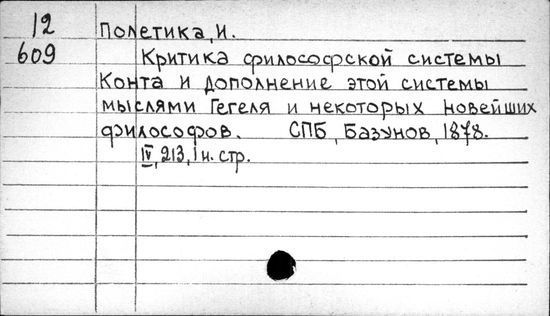 12 Полетика, И.
609 Критика философской системы
Конта и дополнение этой системы
мыслями Гегеля и некоторых новейших
философов. СПБ, Базунов, 1878.
IV, 213, 1 н. стр.